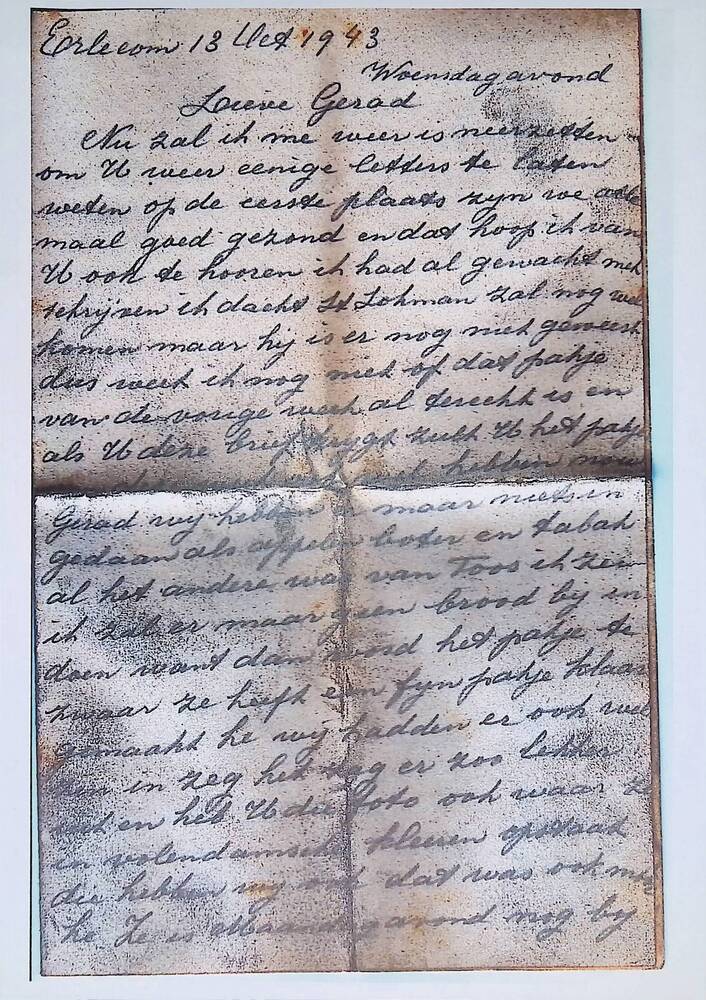 Erlecom 13 Oct 1943
Woensdagavond
Lieve Gerad
Nu zal ik me weer is neerzetten
om U weer eenige letters te laten
weten op de eerste plaats zyn we alle
maal goed gezond en dat hoop ik van
U ook te hooren ik had al gewacht met
schrijven ik dacht St Lohman zal nog wel
komen maar hij is er nog niet geweest
dus weet ik nog niet of dat pakje
van de vorige week al terecht is en
als U deze brief krygt zult U het pakje
hebben nou
Gerad wy hebben er maar niets in
gedaan als appelen boter en tabak
al het andere was van Toos ik zei
ik zal er maar geen brood by in
doen want dan word het pakje te
zwaar ze heeft een fyn pakje klaar
gemaakt he wij hadden er ook wel
in zeg het zag er zoo lekker
uit en heb U die foto ook waar ze
in volendamsche kleeren opstaat
die hebben wy ook dat was ook
he Ze is Maandagavond nog by